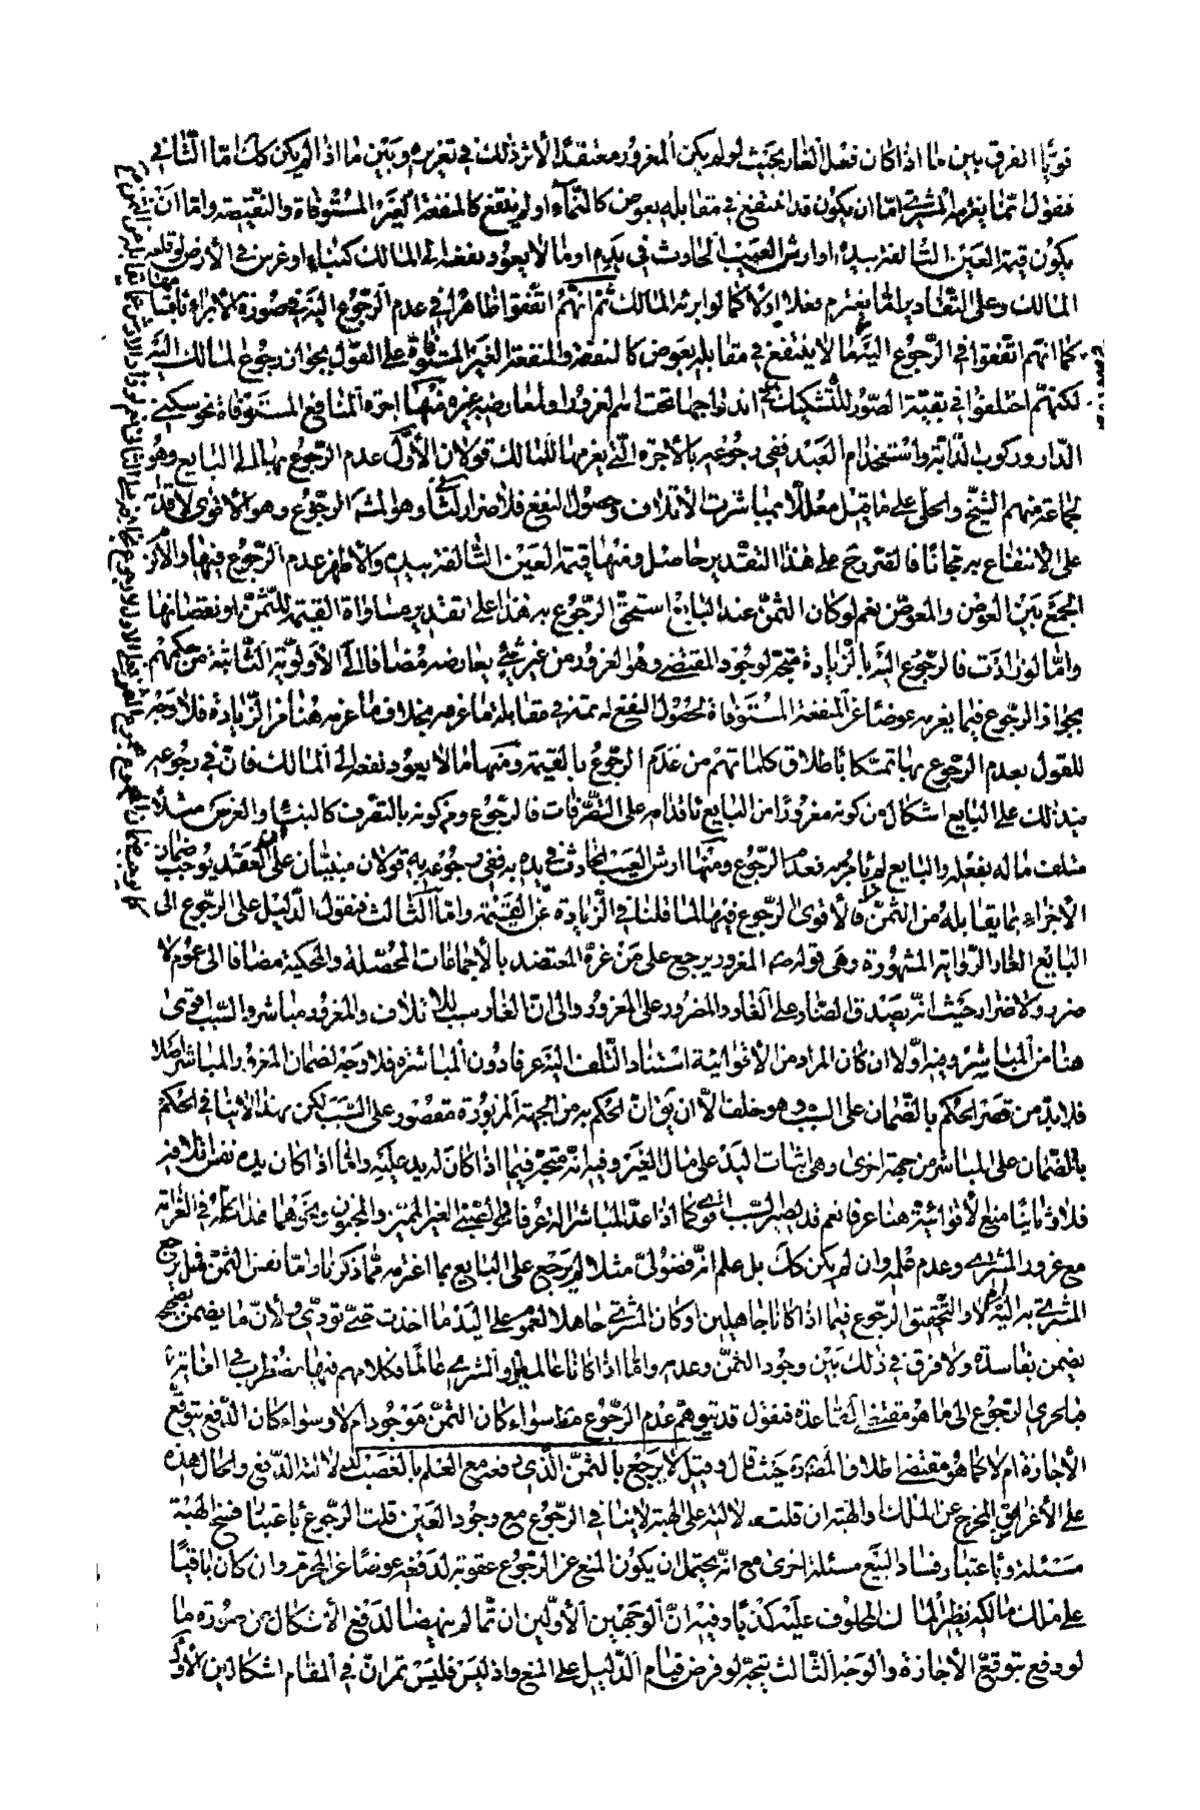 قويّا الفرق بين ما اذا كان فعل الغار بحيث لو لم يكن المغرور معتقدًا لأثر ذلك في تغريره وبين ما اذا لم يكن كك امّا الثّاني
فنقول ممّا يغرمه المشتري امّا ان يكون قد انتفع في مقابله بعوض كالنّماء او لم ينتفع كالمنفعة الغير المستوفاة والنّقيصة وامّا ان
يكون قيمة العين التّالفة بيده او ارش العيب الحادث في يده او ما لا يعود نفعه الى المالك كبناء او غرس في الارض لو قلعه
المالك وعلى التّقادير امّا يغترم فعلا او لا كما لو ابرئه المالك ثمّ انّهم اتّفقوا ظاهرًا في عدم الرّجوع اليه في صورة الابراء
كما انّهم اتّفقوا في الرّجوع اليه بما لا ينتفع في مقابله بعوض كالنفقة والمنفعة الغير المستوفاة على القول بجواز رجوع المالك اليه
لكنّهم اختلفوا في بقيّة الصّور للتشكيك في اندراجها تحت اسم الغرور او لمعارضة غيره منها اجرة المنافع المستوفاة نحو سكنى
الدّار وركوب الدّابة واستخدام العبد ففي رجوعه بالاجرة الّتي يغرمها للمالك قولان الأوّل عدم الرّجوع بها الى البايع وهو
لجماعة منهم الشّيخ والحلّي على ما قيل معلّلا بمباشرت الأتلاف وحصول النفع فلا ضرار الثّاني وهو المشه الرّجوع وهو الاقوى لاقدامه
على الانتفاع به مجانًا فالضّرر على هذا التقدير حاصل ومنها قيمة العين التّالفة بيده والأظهر عدم الرّجوع فيها والا لزم
الجمع بين العوض والمعوّض نعم لو كان الثمن عند البايع استحقّ الرّجوع به هذا على تقدير مساواة القيمة للثّمن او نقصانها
وامّا لو زادت فالرّجوع اليه بالزّيادة متّجه لوجود المقتضي وهو الغرور من غير شيء يعارضه مضافا الى الأولويّة الثّابتة من حكمهم
بجواز الرّجوع فيما يغرمه عوضًا عن المنفعة المستوفاة لحصول النفع له ثمّة في مقابلة ما غرمه بخلاف ما غرمه هنا من الزّيادة فلا وجه
للقول بعدم الرّجوع بها تمسّكا باطلاق كلماتهم من عدم الرّجوع بالقيمة ومنها ما لا يعود نفعه الى المالك فانّ في رجوعه
بذلك على البايع اشكال من كونه مغرورًا من البايع باقدامه على التّصرّفات فالرّجوع ومن كونه بالتصرّف كالبناء والغرس مثلا
متلف ماله بفعله والبايع لم يأمره به فعدم الرّجوع ومنها ارش العيب الحادث في يده ففي رجوعه به قولان مبنيّان على انّ العقد يوجب ضمان
الاجزاء بما يقابله من الثّمن فالأقوى الرّجوع فيها لما قلنا في الزّيادة عن القيمة وامّا الثالث فنقول الدّليل على الرّجوع الى
البايع الغار الرّواية المشهورة وهي قوله ص المغرور يرجع على من غرّه المعتضد بالأجماعات المحصّلة والمحكية مضافا الى عموم لا
ضرر ولا ضرار حيث انّه يصدق الضّار على الغار والمضرور على المغرور والى انّ الغار سبب للاتلاف والمغرور مباشر والسّبب اقوى
هنا من المباشر وفيه اوّلا ان كان المراد من الأقوائية استناد التّلف اليه عرفا دون المباشرة فلا وجه لضمان المغرور المباشر اصلا
فلا بدّ من قصر الحكم بالضّمان على السّبب وهو خلف الّا ان يق انّ الحكم به من الجهة المزبورة مقصور على السّبب لكن بهذا لا ينافي الحكم
بالضّمان على المباشر من جهة اخرى وهي اثبات اليد على مال الغير وفيه انّه متّجه فيما اذا كان له يد عليه وامّا اذا كان يده نفس اتلافه
فلا وثانيًا منع الأقوائيّة هنا عرفا نعم قد يصير السّبب اقوى كما اذا عدّ المباشر الة عرفا كالصّبي الغير المميّز والمجنون ونحوهما هذا كلّه في الغرامة
مع غرور المشتري وعدم علمه وان لم يكن كك بل علم انّه فضوليّ مثلا لم يرجع على البايع بما اغترمه ممّا ذكرنا وامّا نفس الثّمن فهل يرجع
المشتري به اليه ام لا والتّحقيق الرّجوع فيما اذا كانا جاهلين او كان المشتري جاهلا لعموم على اليد ما اخذت حتّى تؤدّي ولأنّ ما يضمن بصحيحه
يضمن بفاسده ولا فرق في ذلك بين وجود الثّمن وعدمه وامّا اذا كانا عالمين او المشتري عالمًا فكلامهم فيها مضطرب في الغاية
فالحري الرّجوع الى ما هو مقتضى القاعدة فنقول قد يتوهّم عدم الرّجوع مطلقا سواء كان الثمن موجودا ام لا وسواء كان الدّفع بتوقّع
الأجازة ام لا كما هو مقتضى اطلاق حيث قال وقيل لا يرجع بالثمن الّذي دفعه مع العلم بالغصب لدلالة الدّفع والحال هذه
على الأعراض المخرج عن الملك والهبة ان قلت دلالته على الهبة لا ينافي الرّجوع مع وجود العين قلت الرّجوع باعتبار فسخ الهبة
مسئلة وباعتبار فساد البيع مسئلة اخرى مع انّه يحتمل ان يكون المنع عن الرّجوع عقوبة لدفعه عوضا عن المحرّم وان كان باقيًا
على ملك مالكه نظير المال المحلوف عليه كذبًا وفيه انّ الوجهين الأوّلين ان تمّا لم ينهضا لدفع الأشكال في صورة ما
لو دفع بتوقّع الأجازة والوجه الثّالث يتّجه لو فرض قيام الدّليل على المنع واذ ليس فليس ثمّ انّ في المقام اشكالين الأوّل